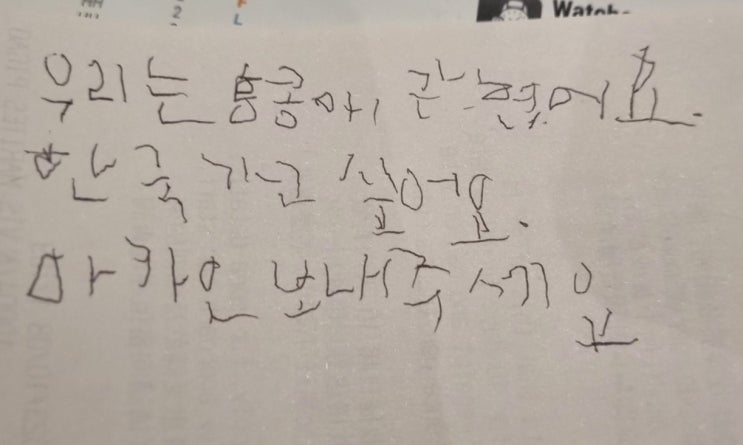 우리는 홍콩에 갇혔어요.
한국 가고 싶어요.
마카인 보내주세요